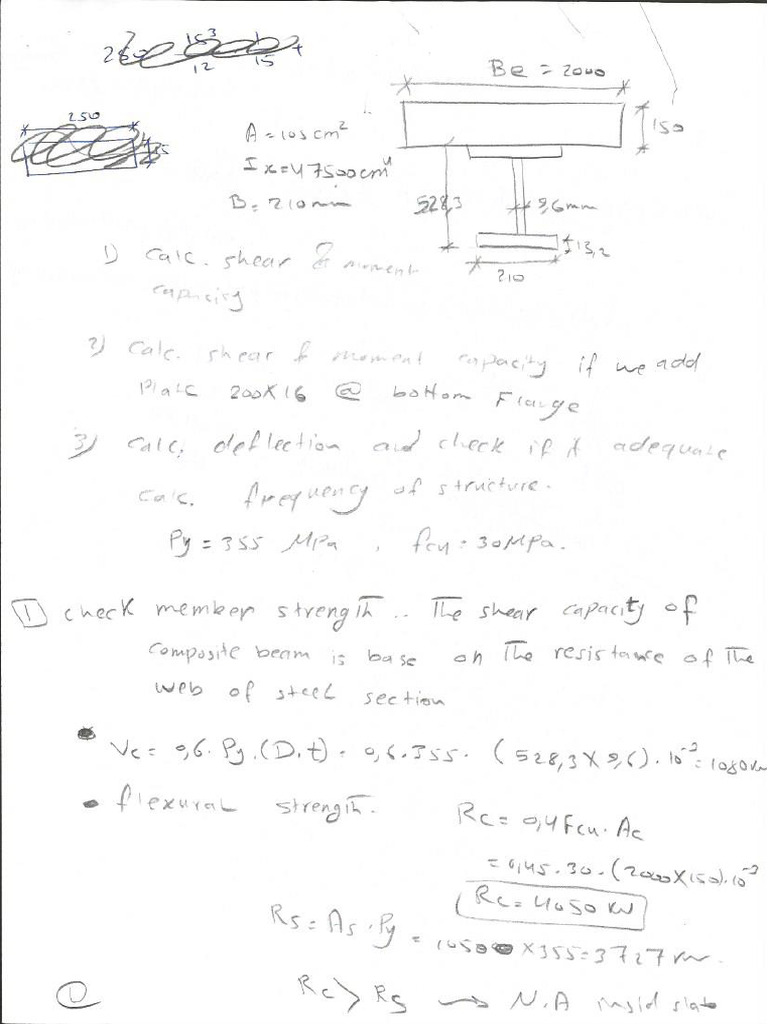 Be = 2000
250
A = 105 cm²
150
Ix = 47500 cm⁴
B = 210 mm
528,3
9,6mm
13,2
210
1) calc. shear & moment
capacity
2) calc. shear & moment capacity if we add
Plate 200X16 @ bottom Flange
3) calc. deflection and check if it adequate
calc. frequency of structure.
Py = 355 MPa , fcu = 30MPa.
1 check member strength .. The shear capacity of
composite beam is base on The resistance of The
web of steel section
• Vc = 0,6. Py. (D.t) = 0,6.355. (528,3 X 9,6) . 10⁻³ = 1080 kN
• flexural strength.
Rc = 0,4 Fcu. Ac
= 0,45. 30. (2000X150).10⁻³
Rc = 4050 kN
Rs = As. Py = 10500 X355 = 3727 kN.
Rc > Rs → N.A insid slab
1